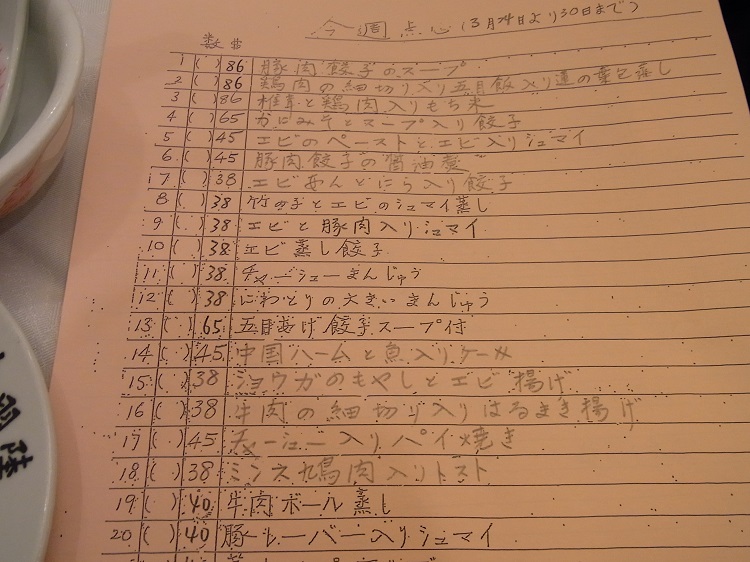 今週点心 (3月24日より30日まで)
数 毌
1 ( ) 86 豚肉餃子のスープ
2 ( ) 86 鶏肉の細切り入り五目飯入り蓮の葉包蒸し
3 ( ) 86 椎茸と鶏肉入りもち米
4 ( ) 65 かにみそとスープ入り餃子
5 ( ) 45 エビのペーストとエビ入りシュマイ
6 ( ) 45 豚肉餃子の醤油煮
7 ( ) 38 エビあんとにら入り餃子
8 ( ) 38 竹の子とエビのシュマイ蒸し
9 ( ) 38 エビと豚肉入りシュマイ
10 ( ) 38 エビ蒸し餃子
11 ( ) 38 チャーシューまんじゅう
12 ( ) 38 にわとりの大きいまんじゅう
13 ( ) 65 五目あげ餃子スープ付
14 ( ) 45 中国ハームと魚入りケーキ
15 ( ) 38 ショウガのもやしとエビ揚げ
16 ( ) 38 牛肉の細切り入りはるまき揚げ
17 ( ) 45 チャーシュー入りパイ焼き
18 ( ) 38 ミンス鳥肉入りトスト
19 ( ) 40 牛肉ボール蒸し
20 ( ) 40 豚レーバー入りシュマイ